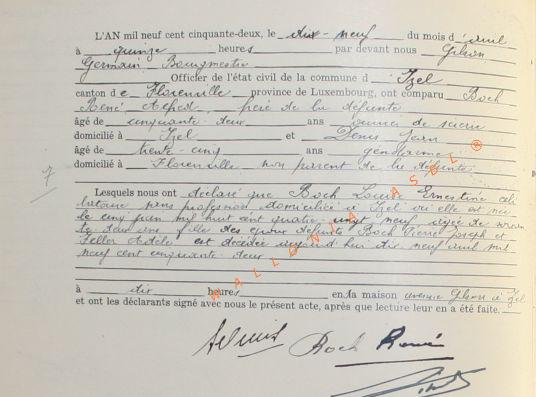 L'AN mil neuf cent cinquante-deux, le dix-neuf du mois d'avril
à quinze heures par devant nous Gilson
Germain Bourgmestre
Officier de l'état civil de la commune d Izel
canton de Florenville province de Luxembourg, ont comparu Boch
René Alfred, frère de la défunte
âgé de cinquante deux ans ouvrier de scierie
domicilié à Izel et Denis Jean
âgé de trente cinq ans gendarme
domicilié à Florenville non parent de la défunte
7
Lesquels nous ont déclaré que Boch Louise Ernestine céli
bataire sans profession domiciliée à Izel où elle est née
le cinq juin mil huit cent quatre-vingt neuf, âgée de soixan
te deux ans fille des époux défunts Boch Pierre Joseph et
Feller Adèle est décédée aujourd'hui dix neuf avril mil
neuf cent cinquante deux
à dix heures en la maison avenue Gilson à Izel
et ont les déclarants signé avec nous le présent acte, après que lecture leur en a été faite.
Boch René
WALLONIA ASBL ®